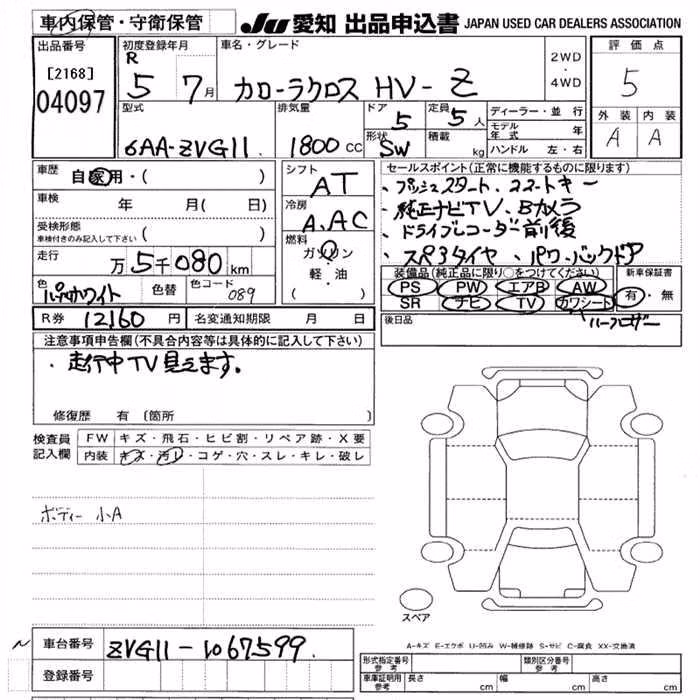 車内保管・守衛保管
JU 愛知 出品申込書 JAPAN USED CAR DEALERS ASSOCIATION
出品番号
[2168]
04097
初度登録年月
R
5 7月
車名・グレード
カローラクロス HV-Z
2WD
・
4WD
評価点
5
外装 内装
A A
型式
6AA-ZVG11
排気量
1800 CC
ドア
5
形状
SW
定員
5人
積載
kg
ディーラー・並行
モデル年式 年
ハンドル 左・右
車歴
自家用・( )
車検 年 月( 日)
受検形態
車検付きのみ記入して下さい ( )
走行
万5千080km
色
パールホワイト
色替
色コード
089
シフト
AT
冷房
A.AC
燃料
ガソリン
軽・油
( )
セールスポイント(正常に機能するものに限ります)
・プッシュスタート、スマートキー
・純正ナビTV、Bカメラ
・ドライブレコーダー前後
・スペアタイヤ、パワーバックドア
装備品(純正品に限り○をつけてください)
PS PW エアB AW
SR ナビ TV カワシート
ハーフレザー
新車保証書
有・無
R券 12160円
名変通知期限 月 日
後日品
注意事項申告欄(不具合内容等は具体的に記入して下さい)
・走行中TV見えます。
修復歴 有(箇所 )
検査員
記入欄
FW キズ・飛石・ヒビ割・リペア跡・X要
内装 キズ・汚レ・コゲ・穴・スレ・キレ・破レ
ボディー 小A
スペア
A-キズ E-エクボ U-凹み W-補修跡 S-サビ C-腐食 XX-交換済
車台番号
ZVG11-1067599
登録番号
形式指定番号
参考
類別区分番号
参考
車庫証明用
参考
長さ cm 幅 cm 高さ cm